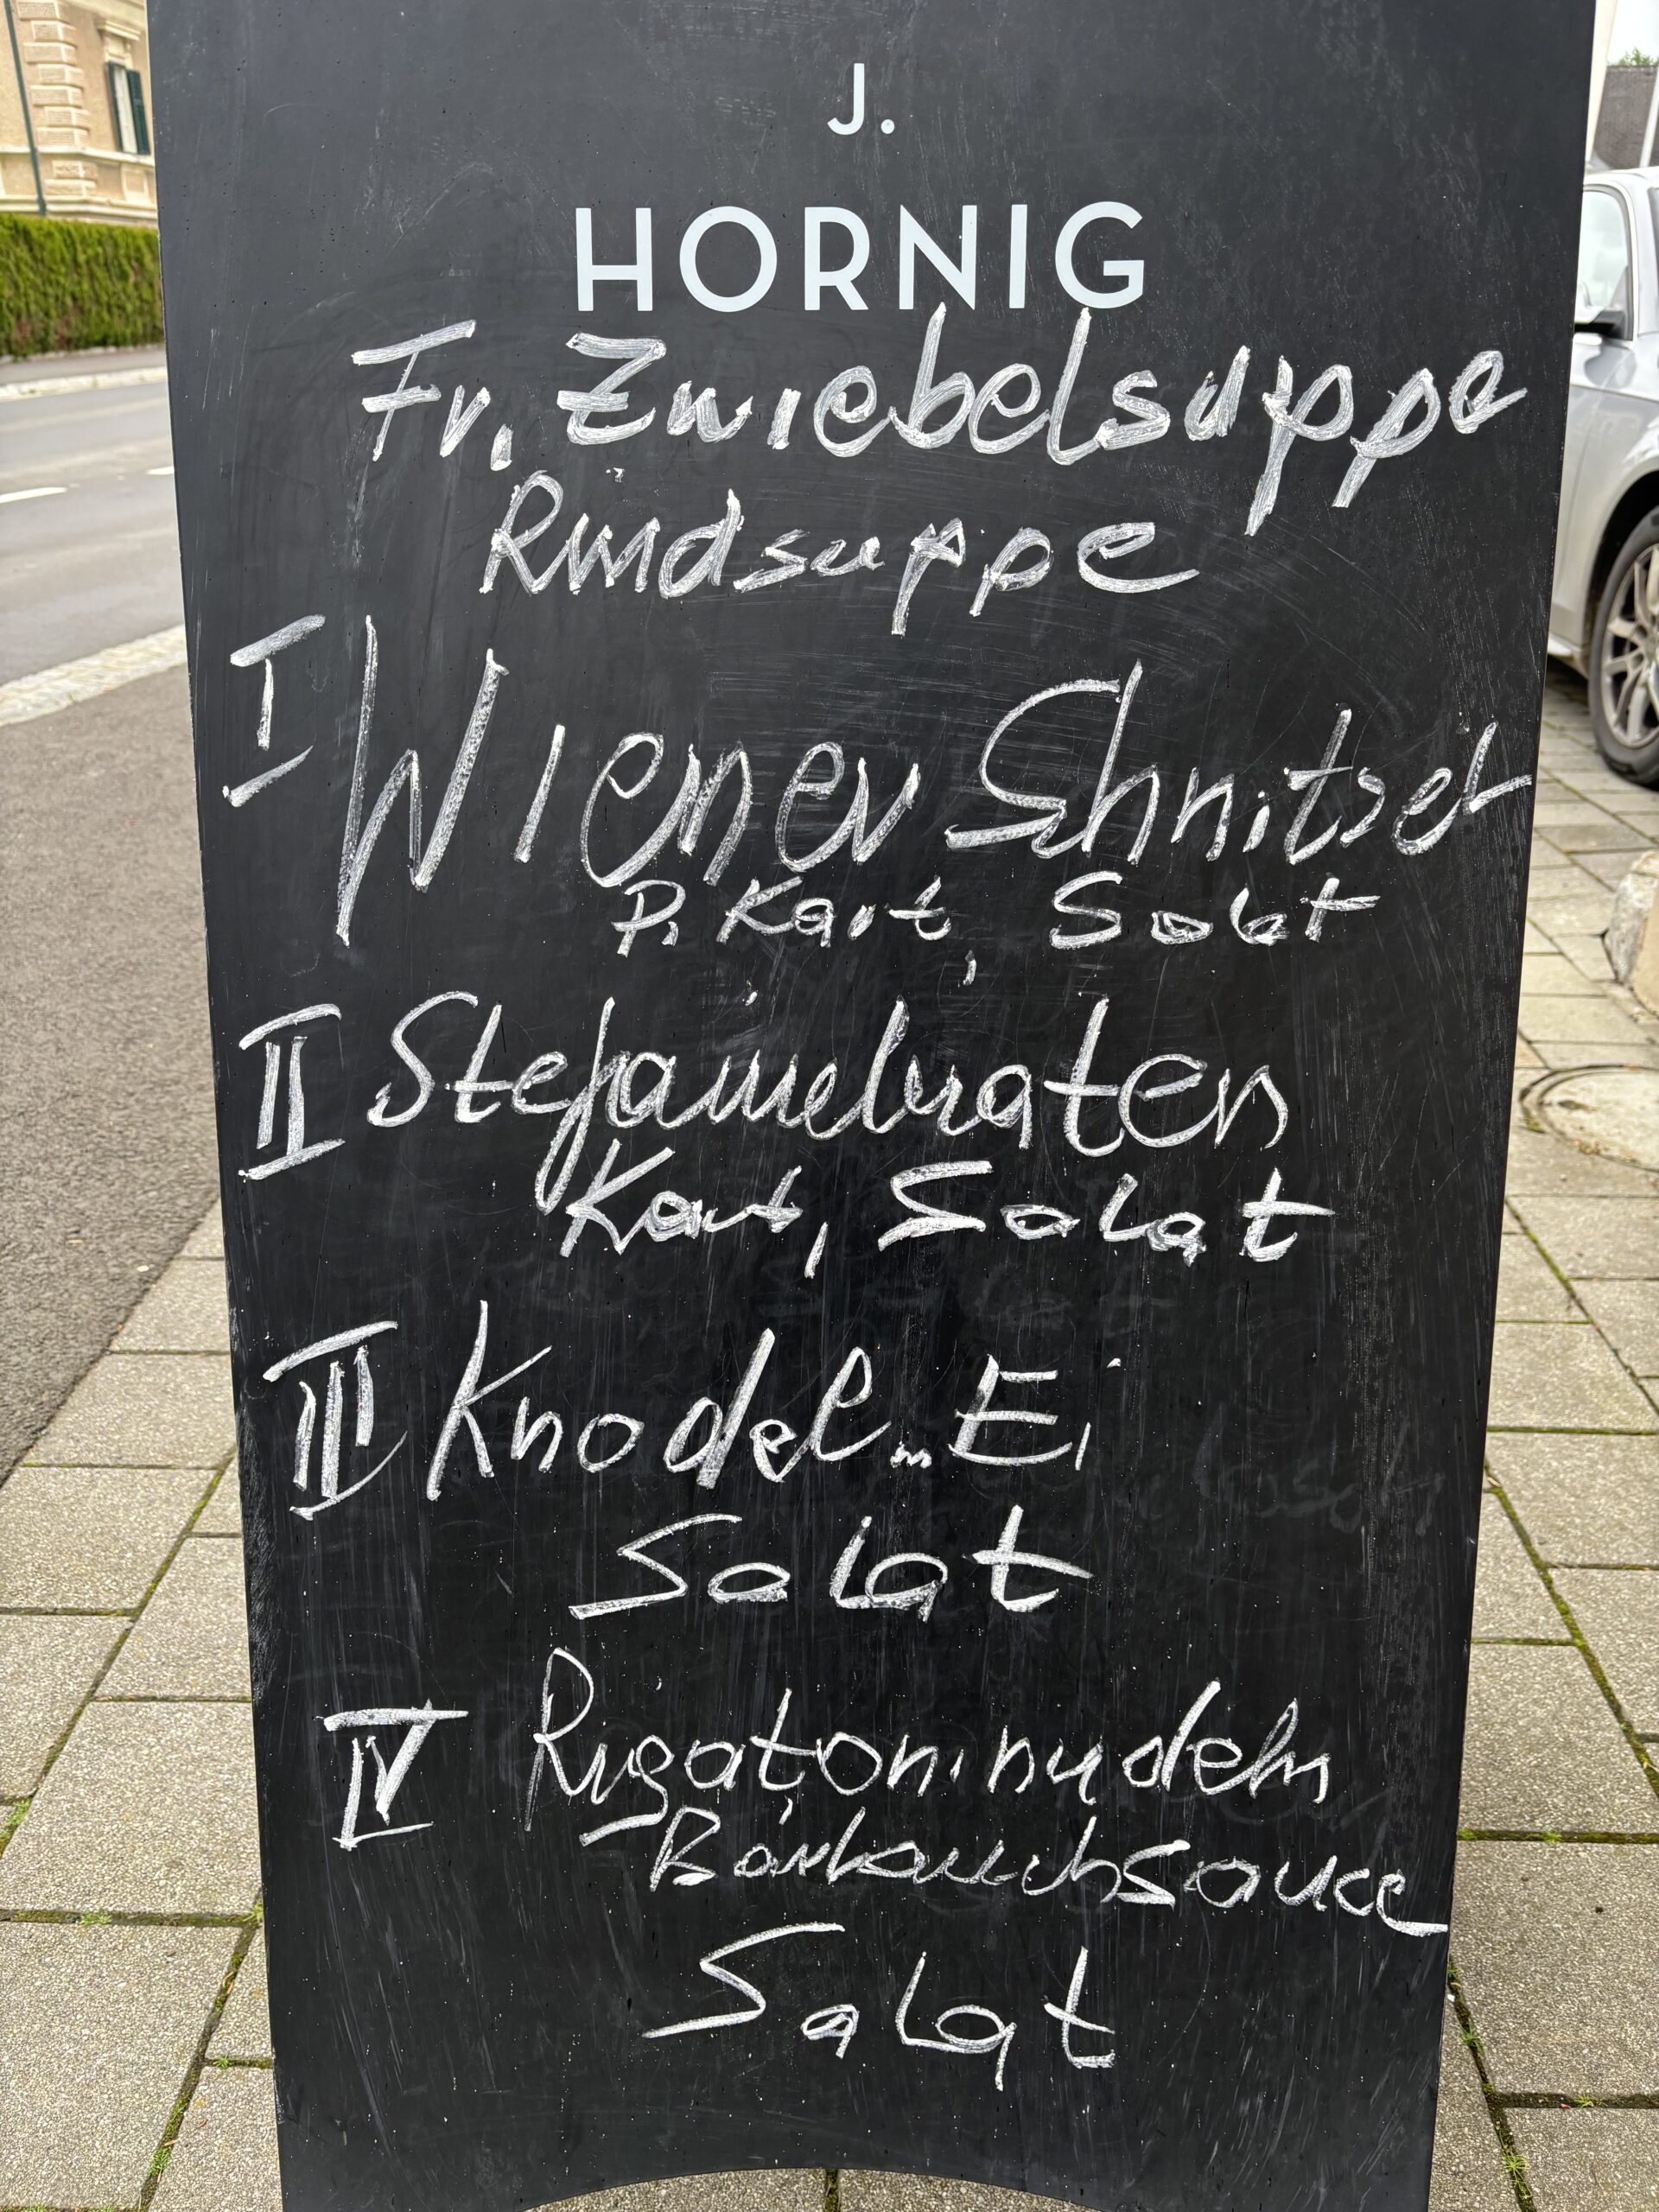 J.
HORNIG
Fr. Zwiebelsuppe
Rindsuppe
I Wiener Schnitzel
P. Kart, Salat
II Stefaniebraten
Kart, Salat
III Knodel m Ei
Salat
IV Rigatoninudeln
Bärlauchsauce
Salat